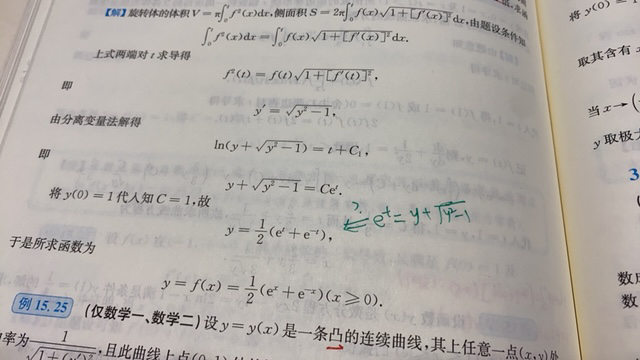 【解】旋转体的体积 V = π∫₀ᵗ f²(x)dx, 侧面积 S = 2π∫₀ᵗ f(x)√(1+[f′(x)]²)dx, 由题设条件知
∫₀ᵗ f²(x)dx = ∫₀ᵗ f(x)√(1+[f′(x)]²)dx.
上式两端对 t 求导得
f²(t) = f(t)√(1+[f′(t)]²),
即
y′ = √(y²−1),
由分离变量法解得
ln(y+√(y²−1)) = t+C₁,
即
y+√(y²−1) = Ceᵗ.
将 y(0) = 1 代入知 C = 1, 故
y = 1/2(eᵗ+e⁻ᵗ),
? ⇐ eᵗ = y+√(y²−1)
于是所求函数为
y = f(x) = 1/2(eˣ+e⁻ˣ)(x ≥ 0).
例 15.25 (仅数学一、数学二) 设 y = y(x) 是一条凸的连续曲线, 其上任意一点 (x, y) 处
率为 1/√(1+(y′)²), 且此曲线上点(0,1)
将 y(
取其含有 x
当 x→
y 取极
3
数
数